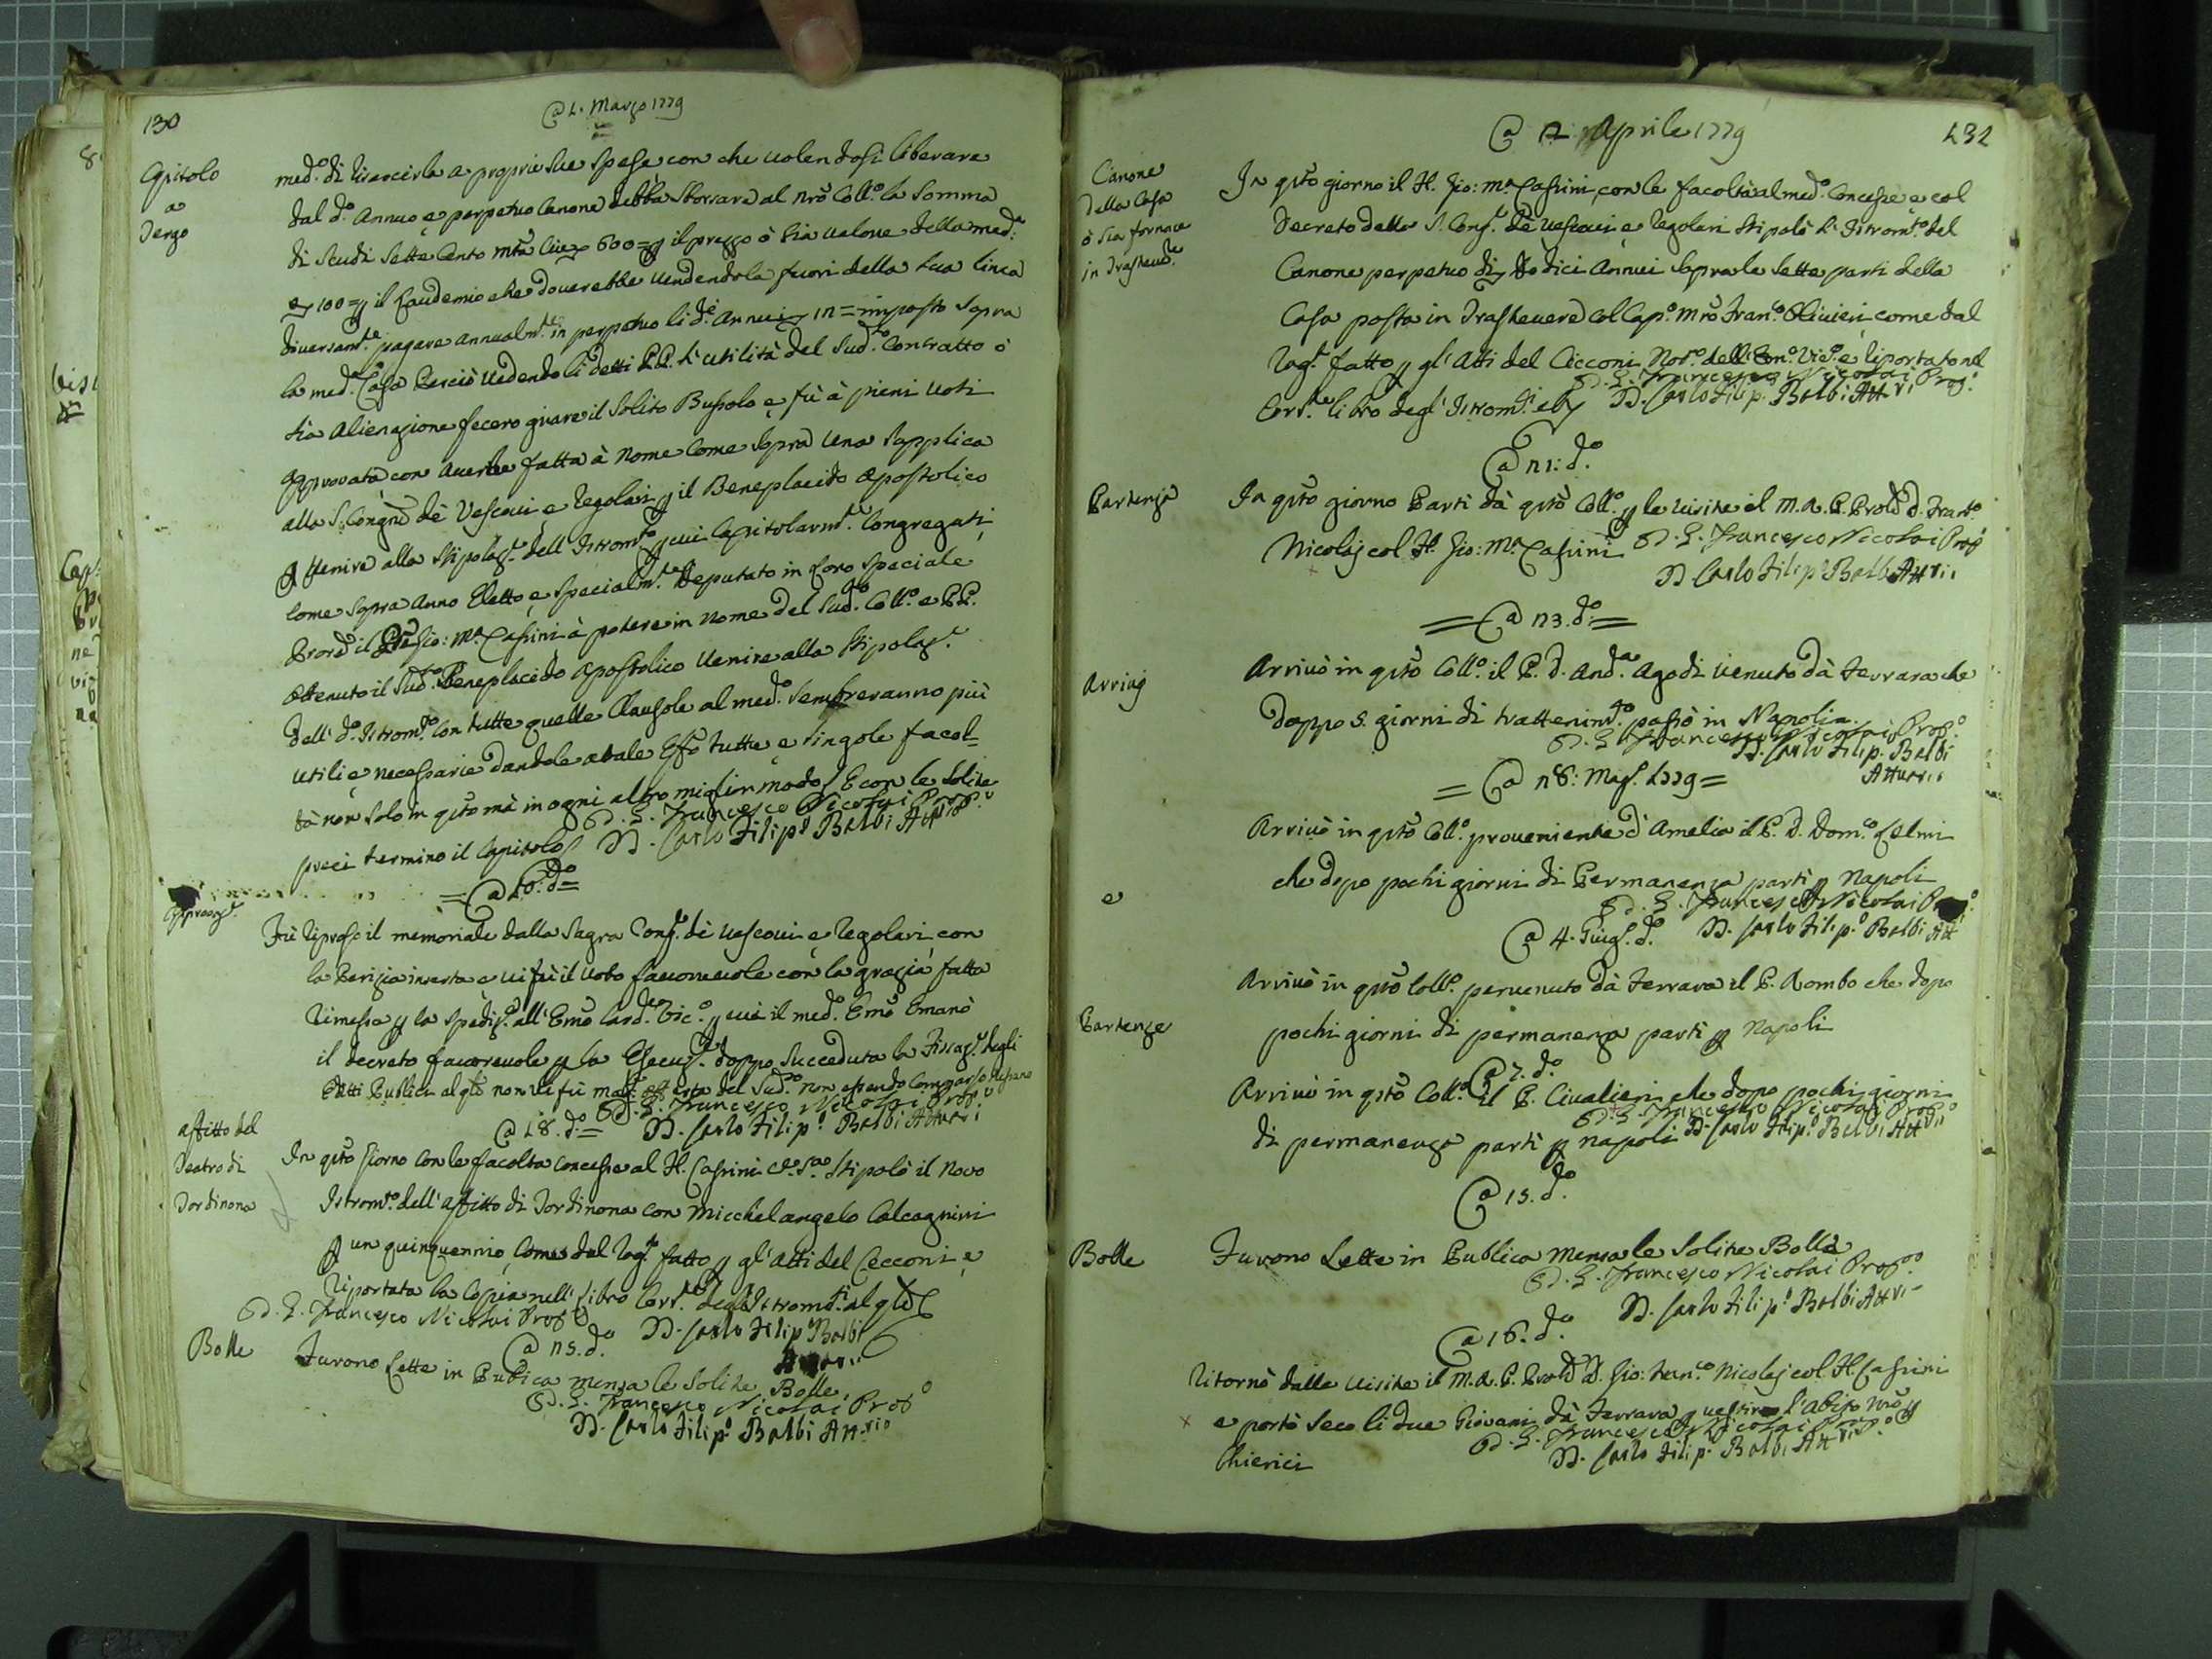 130
@ 1. Marzo 1779
Capitolo
a
Tergo
med.o di risarcirla a proprie sue spese con che volendosi liberare
dal d.o annuo e perpetuo Canone debba sborsare al nrõ Coll.o la somma
di scudi sette cento mta cioe 600 = p il prezzo ò sia valore della med.a
e 100 = p il Laudemio che doverebbe vendendola fuori della sua linea
diversam.te pagare annualm.te in perpetuo li d.i Annui 12 = imposto sopra
la med.a Casa Perciò vedendo li detti P.P. l'utilità del sud.o Contratto ò
sia alienazione fecero girare il solito Bussolo e fù à pieni voti
approvata con averne fatta à nome come sopra una supplica
alla S. Congne dè Vescovi e Regolari p il Beneplacito Apostolico
p venire alla stipolaz.e dell'Istrom.to p cui Capitolarm.te Congregati
come sopra anno Eletto e specialm.te deputato in loro speciale
Procre il Gio: M.a Cassini à potere in nome del sud.o Coll.o e P.P.
ottenuto il sud.o Beneplacito Apostolico venire alla stipolaz.e
dell' d.o Istrom.to con tutte quelle clausole al med.o sembreranno più
utili e necessarie dandole a tale Effo tutte e singole facol=
tà non solo in qsto mà in ogni altro miglior modo E con le solite
preci termino il Capitolo D. G. Francesco Nicolai Prop.o
D. Carlo Filip.o Balbi Att.rio
= @ 16. d.o =
Approvaz.e
Fù riposto il memoriale dalla Sagra Cong. dè Vescovi e Regolari con
la Perizia inserta e vi fù il voto favorevole con la grazia fatta
rimessa p la spediz.e all' Emo Card.e Vic.o p cui il med.o Emo Emanò
il decreto favorevole p la Esecuz.e doppo succeduta la Fissaz.e degli
Editti Publici al qle non vi fù magg. offerta del sud.o non essendo comparso nessuno
D. G. Francesco Nicolai Prop.o
@ 18. d.o = D. Carlo Filip.o Balbi Attuari
affitto del
Teatro di
Tordinona
In qsto Giorno con le facolta concesse al H. Cassini c.e s.a Stipolò il novo
Istrom.to dell'affitto di Tordinona con Micchelangelo Calcagnini
p un quinquennio, come dal rog.to fatto p gl'atti del Cecconi e
riportata la Copia nell' Libro Corr.te degl'Istrom.ti al qle
D. G. Francesco Nicolai Prop.o
@ 25. d.o D. Carlo Filip.o Balbi
Bolle
Furono Lette in Publica mensa le solite Bolle,
D. G. Francesco Nicolai Prop.o
D. Carlo Filip.o Balbi Att.rio
@ 12 Aprile 1779
131
Canone
della Casa
ò sia fornace
in Trastev.e
In qsto giorno il H. Gio: M.a Cassini con le facoltà al med.o Concesse e col
Decreto della S. Cong.e dè Vescovi e Regolari stipolò l'Istrom.to del
Canone perpetuo di dodici annui sopra le sette parti della
Casa posta in Trastevere col Cap.o Mro Fran.co Olivieri come dal
rog.o fatto p gl'Atti del Cecconi Not.o dell' Emo Vic.o e riportato nel
Corr.te libro degl'Istrom.ti D. G. Francesco Nicolai Prop.
D. Carlo Filip. Balbi Att.ri
@ 21: d.o
Partenza
In qsto giorno Partì dà qsto Coll.o p le visite il M.R.P. Prole D. Fran.co
Nicolaj col H. Gio: M.a Cassini D. G. Francesco Nicolai Prop
D. Carlo Filip.o Balbi Att.ri
= @ 23. d.o =
Arrivi
Arrivò in qsto Coll.o il P. D. And.a Agodi venuto dà Ferrara che
doppo 5. giorni di trattenim.to passò in Napolia.
D. G. Francesco Nicolai Prop.o
D. Carlo Filip. Balbi
Attuari
= @ 28: Mag.o 1779 =
Arrivò in qsto Coll.o proveniente d'Amelia il P. D. Dom.co Celmi
che dopo pochi giorni di Permanenza partì p Napoli
D. G. Francesco Nicolai
e
@ 4. Giug.o d.o D. Carlo Filip.o Balbi Att
Arrivò in qsto Coll.o pervenuto dà Ferrara il P. Rombo che dopo
Partenze
pochi giorni di permanenza partì p Napoli
@ 7. d.o
Arrivò in qsto Coll.o il P. Civalieri che dopo pochi giorni
D. G. Francesco Nicolai Prop.o
di permanenza partì p Napoli D. Carlo Filip.o Balbi Att.ri
@ 15. d.o
Bolle
Furono Lette in Publica mensa le solite Bolle
D. G. Francesco Nicolai Prop.o
D. Carlo Filip.o Balbi Att.ri
@ 16. d.o
Ritornò dalle visite il M.R.P. Prole D. Gio: Fran.co Nicolaj col H. Cassini
e portò seco li due Giovani dà Ferrara p vestire l'abito nrõ p
D. G. Francesco Nicolai Prop.o
Chierici
D. Carlo Filip. Balbi Att.ri